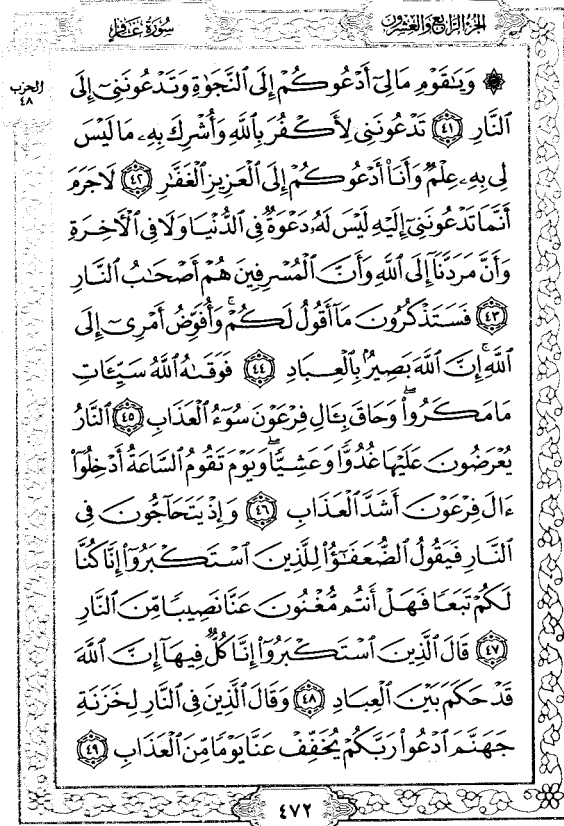 الجزء الرابع والعشرون
سورة غافر
الحزب
٤٨
۞ وَيَٰقَوْمِ مَا لِىٓ أَدْعُوكُمْ إِلَى ٱلنَّجَوٰةِ وَتَدْعُونَنِىٓ إِلَى
ٱلنَّارِ ٤١ تَدْعُونَنِى لِأَكْفُرَ بِٱللَّهِ وَأُشْرِكَ بِهِۦ مَا لَيْسَ
لِى بِهِۦ عِلْمٌ وَأَنَا۠ أَدْعُوكُمْ إِلَى ٱلْعَزِيزِ ٱلْغَفَّٰرِ ٤٢ لَا جَرَمَ
أَنَّمَا تَدْعُونَنِىٓ إِلَيْهِ لَيْسَ لَهُۥ دَعْوَةٌ فِى ٱلدُّنْيَا وَلَا فِى ٱلْأَخِرَةِ
وَأَنَّ مَرَدَّنَآ إِلَى ٱللَّهِ وَأَنَّ ٱلْمُسْرِفِينَ هُمْ أَصْحَٰبُ ٱلنَّارِ
٤٣ فَسَتَذْكُرُونَ مَآ أَقُولُ لَكُمْۚ وَأُفَوِّضُ أَمْرِىٓ إِلَى
ٱللَّهِۚ إِنَّ ٱللَّهَ بَصِيرٌۢ بِٱلْعِبَادِ ٤٤ فَوَقَىٰهُ ٱللَّهُ سَيِّـَٔاتِ
مَا مَكَرُوا۟ۖ وَحَاقَ بِـَٔالِ فِرْعَوْنَ سُوٓءُ ٱلْعَذَابِ ٤٥ ٱلنَّارُ
يُعْرَضُونَ عَلَيْهَا غُدُوًّا وَعَشِيًّاۖ وَيَوْمَ تَقُومُ ٱلسَّاعَةُ أَدْخِلُوٓا۟
ءَالَ فِرْعَوْنَ أَشَدَّ ٱلْعَذَابِ ٤٦ وَإِذْ يَتَحَآجُّونَ فِى
ٱلنَّارِ فَيَقُولُ ٱلضُّعَفَٰٓؤُا۟ لِلَّذِينَ ٱسْتَكْبَرُوٓا۟ إِنَّا كُنَّا
لَكُمْ تَبَعًا فَهَلْ أَنتُم مُّغْنُونَ عَنَّا نَصِيبًا مِّنَ ٱلنَّارِ
٤٧ قَالَ ٱلَّذِينَ ٱسْتَكْبَرُوٓا۟ إِنَّا كُلٌّ فِيهَآ إِنَّ ٱللَّهَ
قَدْ حَكَمَ بَيْنَ ٱلْعِبَادِ ٤٨ وَقَالَ ٱلَّذِينَ فِى ٱلنَّارِ لِخَزَنَةِ
جَهَنَّمَ ٱدْعُوا۟ رَبَّكُمْ يُخَفِّفْ عَنَّا يَوْمًا مِّنَ ٱلْعَذَابِ ٤٩
٤٧٢